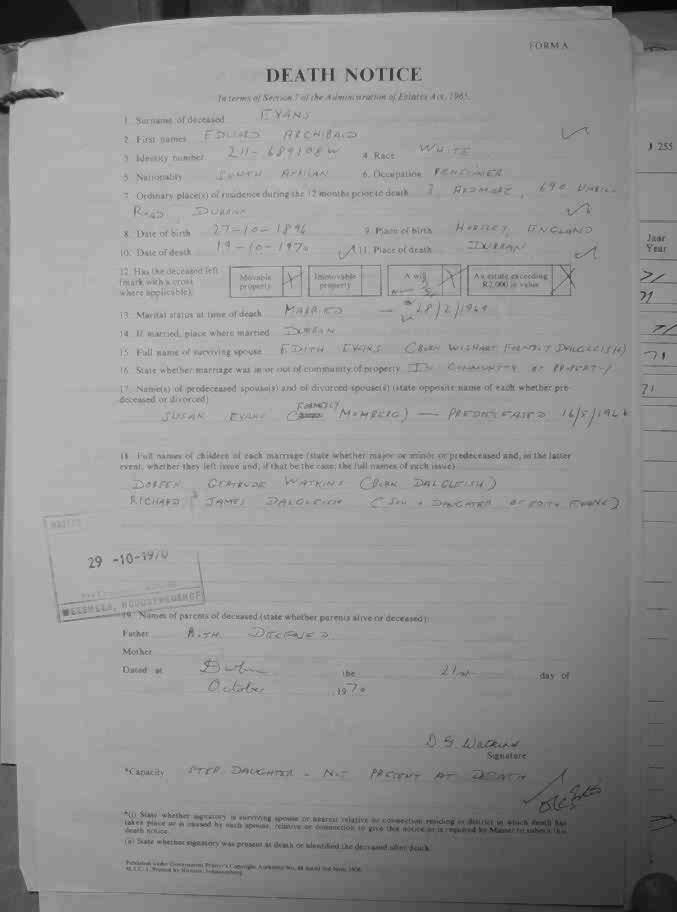 FORM A
DEATH NOTICE
In terms of Section 7 of the Administration of Estates Act, 1965.
1. Surname of deceased EVANS
2. First names EDWARD ARCHIBALD
3. Identity number 211-689108W 4. Race WHITE
5. Nationality SOUTH AFRICAN 6. Occupation PENSIONER
7. Ordinary place(s) of residence during the 12 months prior to death 3, ARDMORE, 690
ROAD, DURBAN
8. Date of birth 27-10-1896 9. Place of birth ENGLAND
10. Date of death 19-10-1970 11. Place of death DURBAN
12. Has the deceased left (mark with a cross where applicable): Movable property X Immovable property A will X An estate exceeding R2,000 in value X
13. Marital status at time of death MARRIED — 28/2/1969
14. If married, place where married DURBAN
15. Full name of surviving spouse EDITH EVANS (BORN WISHART FORMERLY DALGLEISH)
16. State whether marriage was in or out of community of property IN COMMUNITY OF PROPERTY
17. Name(s) of predeceased spouse(s) and of divorced spouse(s) (state opposite name of each whether pre-
deceased or divorced)
SUSAN EVANS (FORMERLY MOMBERG) — PREDECEASED
18. Full names of children of each marriage (state whether major or minor or predeceased and, in the latter
event, whether they left issue and, if that be the case, the full names of such issue)
DOREEN GERTRUDE WATKINS (BORN DALGLEISH)
RICHARD JAMES DALGLEISH (SON & DAUGHTER OF EDITH EVANS)
29 -10- 1970
19. Names of parents of deceased (state whether parents alive or deceased):
Father BOTH DECEASED
Mother
Dated at Durban the 21st day of
October 1970
D. G. Watkins
Signature
*Capacity STEP DAUGHTER - NOT PRESENT AT DEATH
*(i) State whether signatory is surviving spouse or nearest relative or connection residing in district in which death has
taken place or is caused by such spouse, relative or connection to give this notice or is required by Master to submit this
death notice.
(ii) State whether signatory was present at death or identified the deceased after death.
J 255
Jaar
Year
71
71
71
71
71